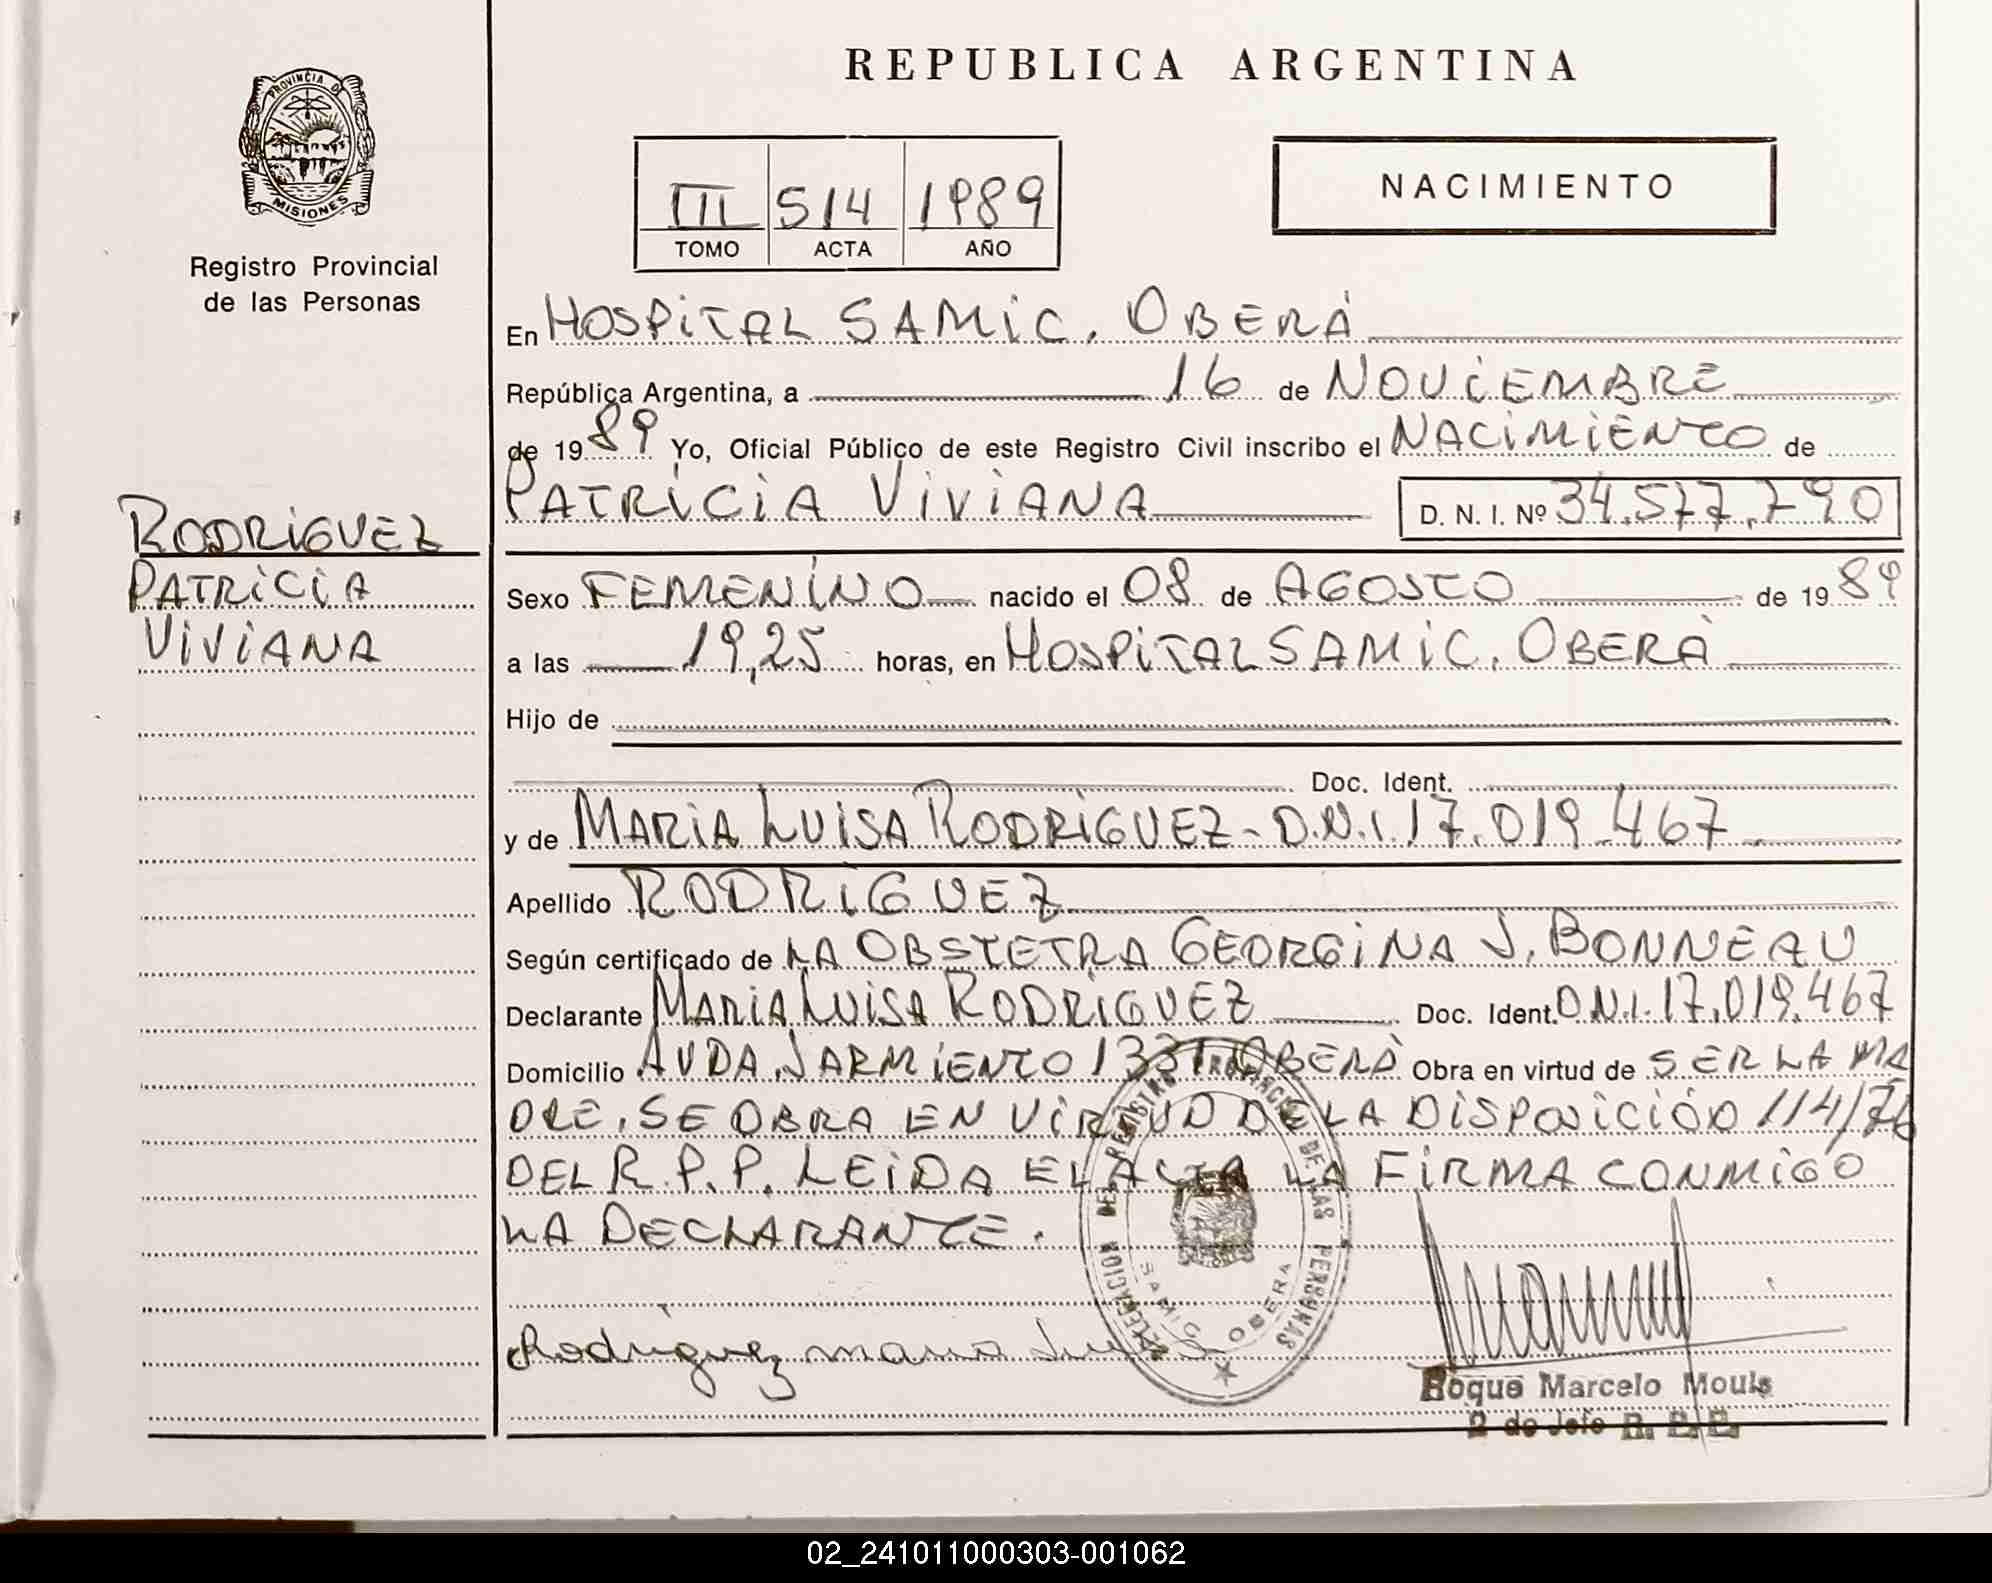 REPUBLICA ARGENTINA
PROVINCIA DE
MISIONES
Registro Provincial
de las Personas
III 514 1989
TOMO ACTA AÑO
NACIMIENTO
En HOSPITAL SAMIC, OBERÁ
República Argentina, a 16 de NOVIEMBRE
de 1989 Yo, Oficial Público de este Registro Civil inscribo el NACIMIENTO de
PATRICIA VIVIANA D. N. I. Nº 34.577.790
RODRIGUEZ
PATRICIA
VIVIANA
Sexo FEMENINO nacido el 08 de AGOSTO de 1989
a las 19,25 horas, en HOSPITAL SAMIC, OBERÁ
Hijo de
Doc. Ident.
y de MARIA LUISA RODRIGUEZ - D.N.I. 17.019.467
Apellido RODRIGUEZ
Según certificado de LA OBSTETRA GEORGINA J. BONNEAU
Declarante MARIA LUISA RODRIGUEZ Doc. Ident. D.N.I. 17.019.467
Domicilio AVDA. SARMIENTO 1331 OBERÁ Obra en virtud de SER LA MA
DRE. SE OBRA EN VIRTUD DE LA DISPOSICIÓN 114/76
DEL R.P.P. LEIDA EL ACTA LA FIRMA CONMIGO
LA DECLARANTE.
DELEGACION DEL REGISTRO PROVINCIAL DE LAS PERSONAS
SAMIC OBERA
Rodriguez maria Luisa
Roque Marcelo Mouls
2 do Jefe
02_241011000303-001062